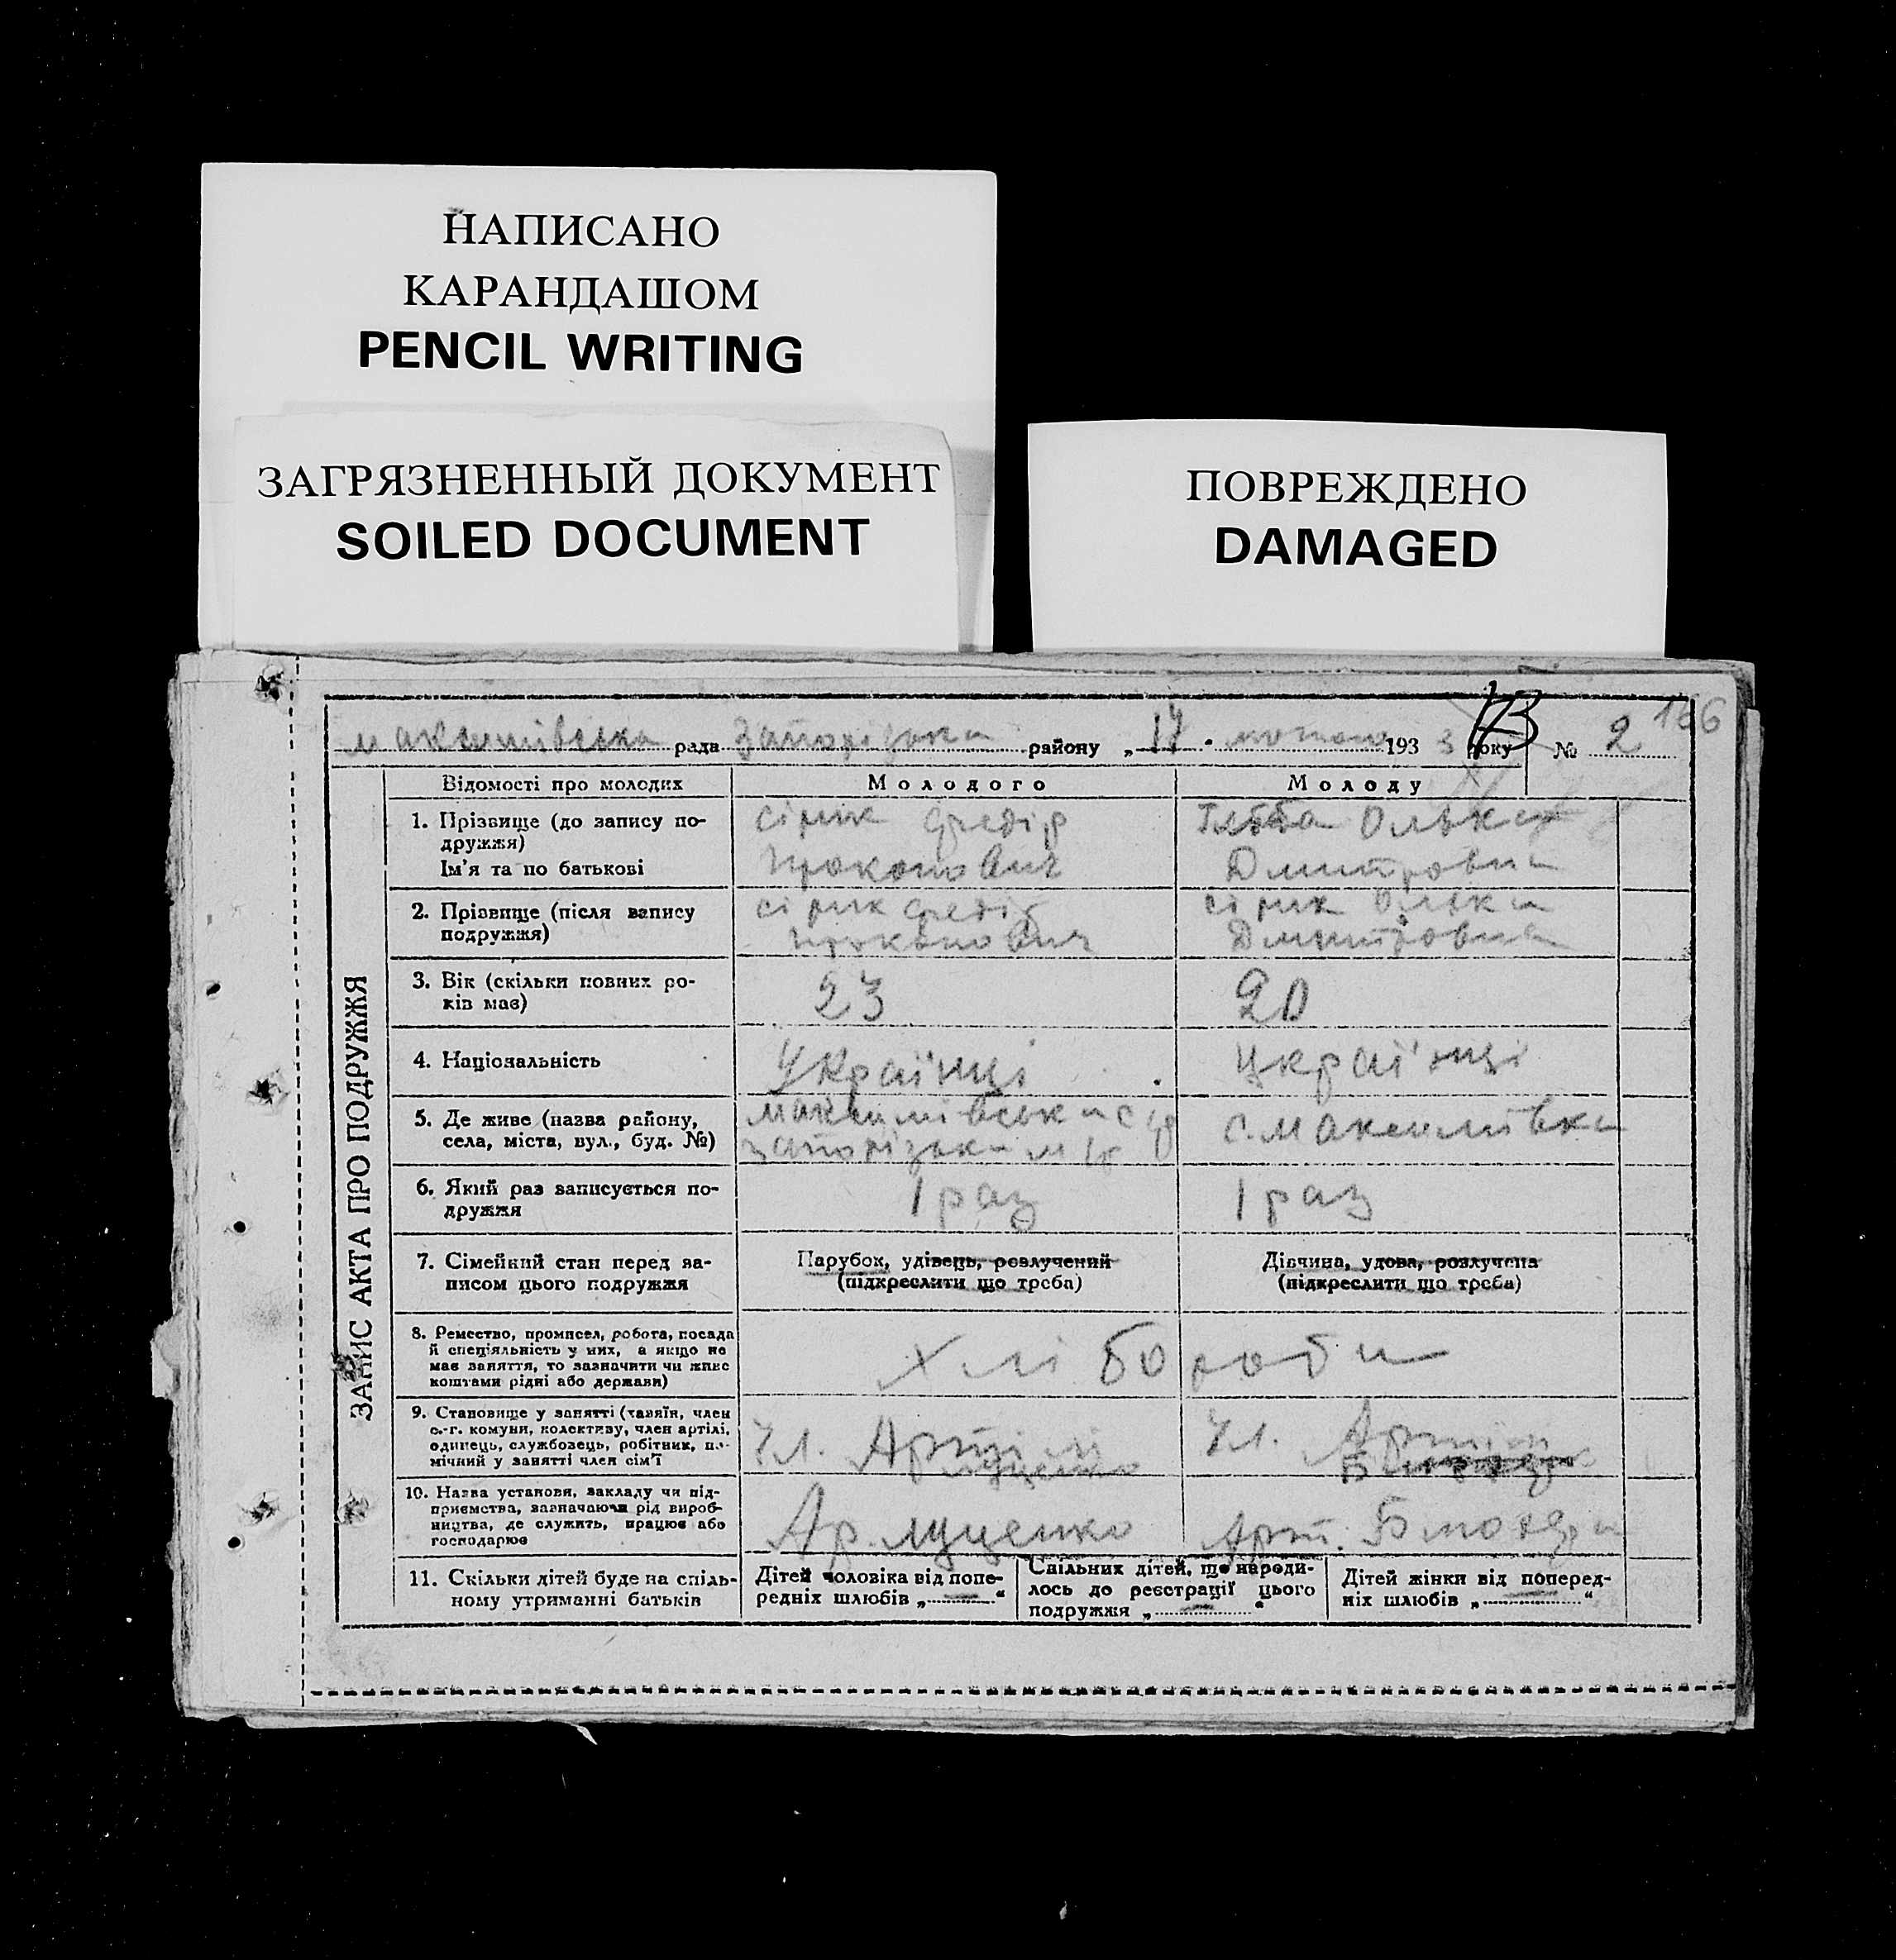 НАПИСАНО
КАРАНДАШОМ
PENCIL WRITING
ЗАГРЯЗНЕННЫЙ ДОКУМЕНТ
SOILED DOCUMENT
ПОВРЕЖДЕНО
DAMAGED
166
максимівська рада Запорізька району „ 14 " лютого 193 3 року № 2
ЗАПИС АКТА ПРО ПОДРУЖЖЯ
Відомості про молодих
Молодого
Молоду
1. Прізвище (до запису по-
дружжя)
Ім'я та по батькові
сірик Федір
Прокопович
Олька
Дмитровна
2. Прізвище (після запису
подружжя)
сірик Федір
Прокопович
сірик Олька
Дмитровна
3. Вік (скільки повних ро-
ків має)
23
20
4. Національність
Українці
Українці
5. Де живе (назва району,
села, міста, вул., буд. №)
максимівська с
запорізька
с. Максимівка
6. Який раз записується по-
дружжя
1 раз
1 раз
7. Сімейний стан перед за-
писом цього подружжя
Парубок, удівець, розлучений
(підкреслити що треба)
Дівчина, удова, розлучена
(підкреслити що треба)
8. Ремество, промисел, робота, посада
й спеціяльність у них, а якщо не
має заняття, то зазначити чи живе
коштами рідні або держави)
Хлібороби
9. Становище у занятті (хазяїн, член
с.-г. комуни, колективу, член артілі,
одинець, службовець, робітник, по-
мічний у занятті член сім'ї
Чл. Артілі
Чл. Артілі
10. Назва установи, закладу чи під-
приємства, зазначаючи рід вироб-
ництва, де служить, працює або
господарює
Ар. луценко
Арт.
11. Скільки дітей буде на спіль-
ному утриманні батьків
Дітей чоловіка від попе-
редніх шлюбів „ — "
Спільних дітей, що народи-
лось до реєстрації цього
подружжя „ — "
Дітей жінки від поперед-
ніх шлюбів „ — "